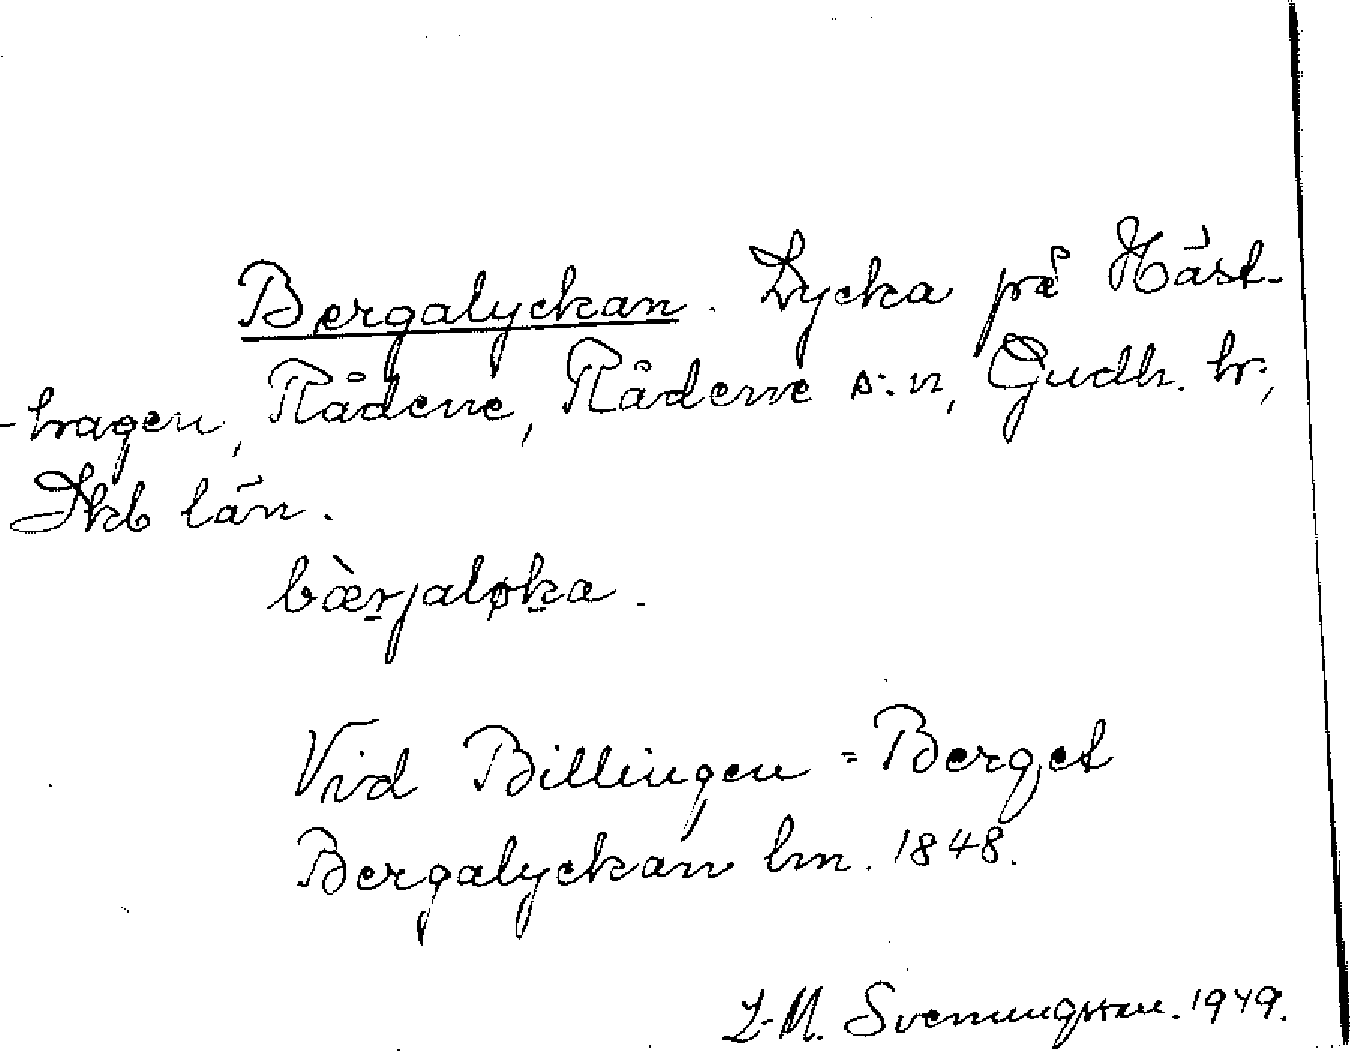 Bergalyckan. Lycka på Häst-
-hagen, Rådene, Rådene s:n, Gudh. hr,
Skb län.
bæ̀rjaløka.
Vid Billingen = Berget
Bergalyckan lm. 1848.
L-M. Svenungsson. 1949.